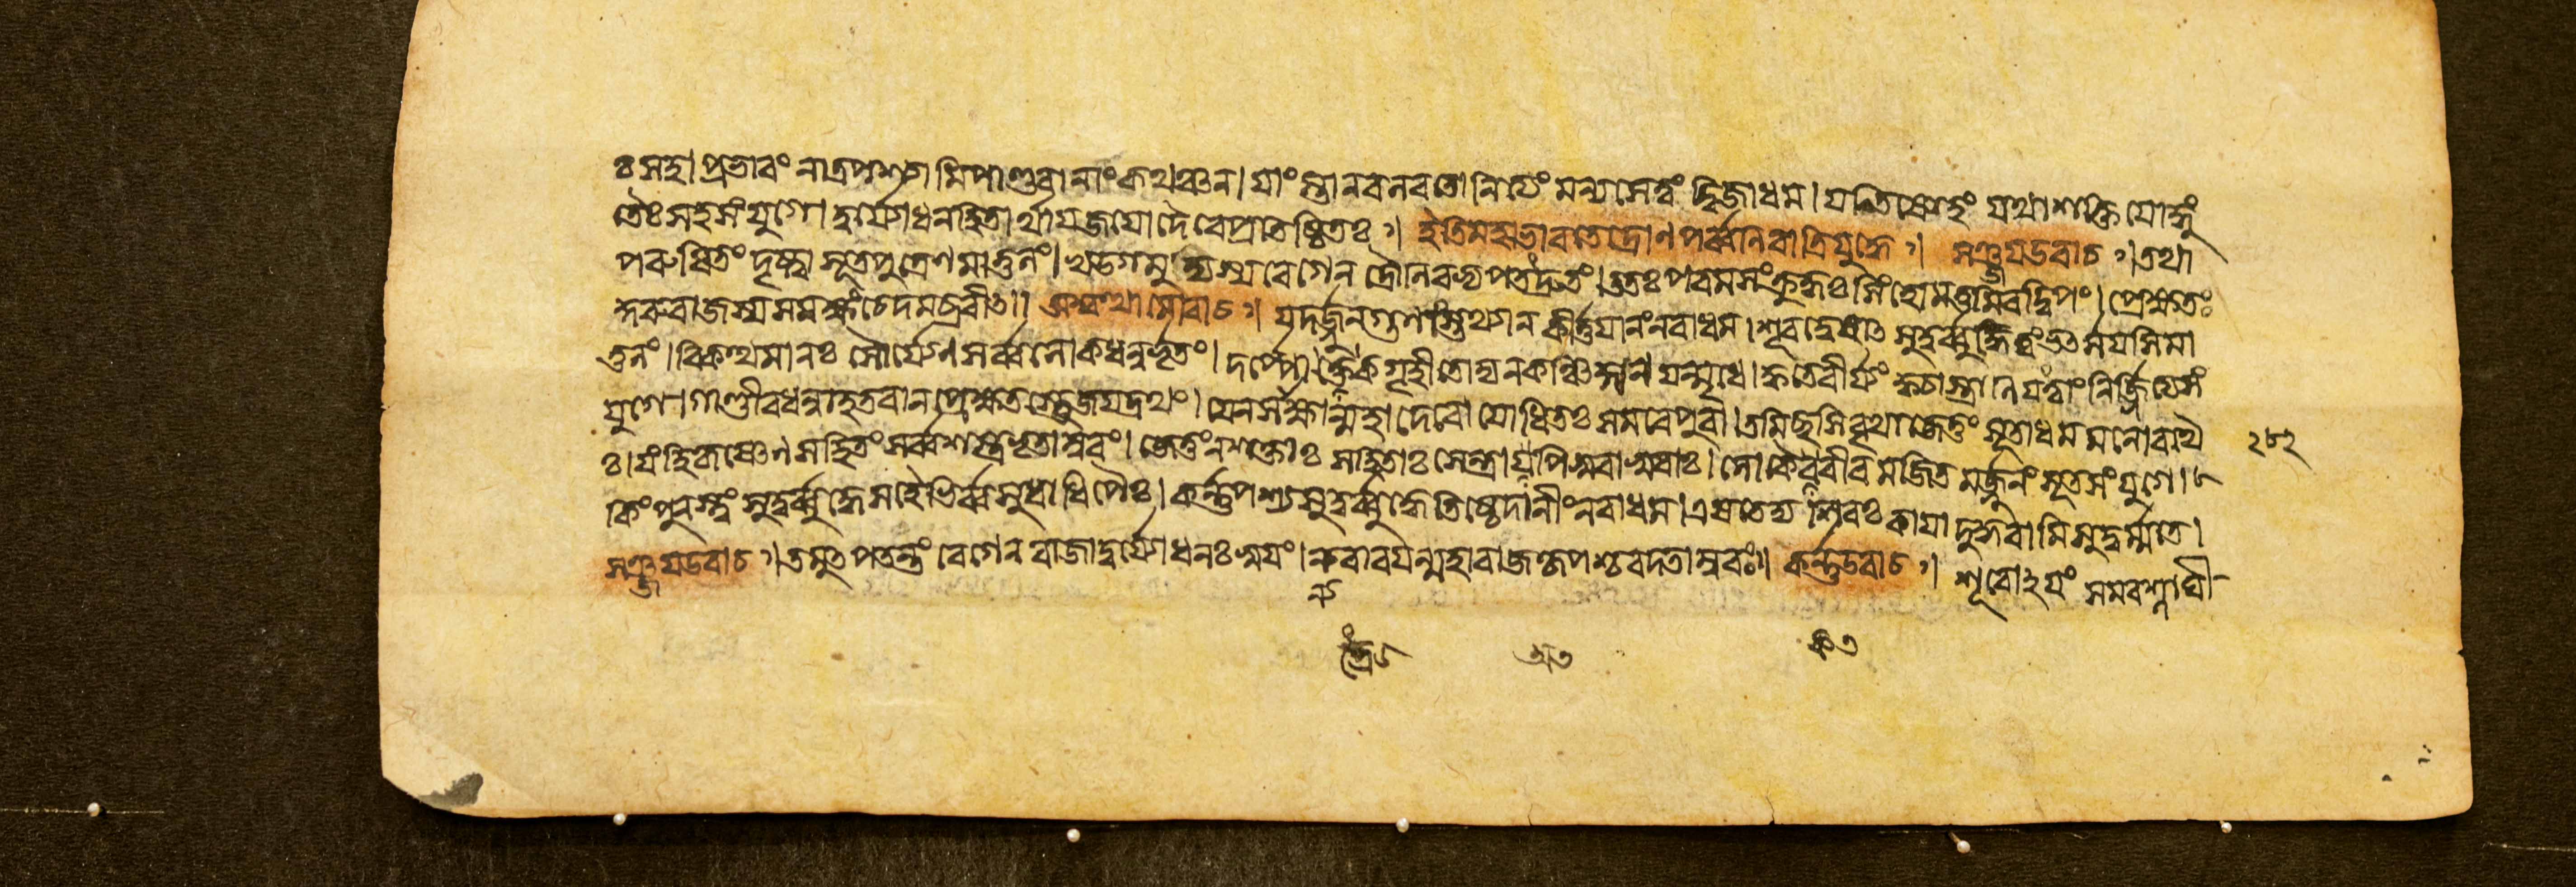 ঃ সহ। প্রভাবং নাত্রপশ্যামিপাণ্ডবানাংকথঞ্চন। যাংস্তানবলবতোনিত্যং মন্যসেত্বং দ্বিজাধম। যতিষ্যেহং যথাশক্তি যোদ্ধুং
তৈঃসহসংযুগে। দুর্যোধনহিতার্থায়জয়োদৈবেপ্রতিষ্ঠিতঃ। ইতিমহাভারতেদ্রোণপর্ব্বণিরাত্রিযুদ্ধে। সঞ্জয়উবাচ। তথা
পরুষিতং দৃষ্ট্বা সূতপুত্রেণমাতুলং। খড্গমুদ্যম্যবেগেন দ্রৌণিরভ্যপতদ্দ্রুতং। ততঃ পরমসংক্রুদ্ধঃ সিংহোমত্তমিবদ্বিপং। প্রেক্ষতঃ
কুরুরাজস্যসমক্ষং চেদমব্রবীৎ॥ অশ্বত্থামোবাচ। যদর্জ্জুনগুণাংস্তথ্যান কীর্ত্তয়ানংনরাধম। শূরদ্বেষাৎ সুদুর্ব্বুদ্ধেত্বং ভর্ৎসয়সিমা
তুলং। বিকত্থমানঃ শৌর্যেণ সর্ব্বলোকধনুর্ভৃতং। দর্পোৎসেকগৃহীতোদ্যনকঞ্চিদ্গণয়ন্মৃধে। ক্বতেবীর্যং ক্বচাস্ত্রাণিযত্ত্বাং নির্জ্জিত্যসং
যুগে। গাণ্ডীবধন্বাহতবান প্রেক্ষতস্তেজয়দ্রথং। যেনসাক্ষান্মহাদেবো যোধিতঃ সমরেপুরা। তমিচ্ছসিবৃথাজেতুং সূতাধমমনোরথৈ
ঃ। যংহিকৃষ্ণেনসহিতং সর্ব্বশস্ত্রভৃতাম্বরং। জেতুংনশক্তাঃ সহিতাঃ সেন্দ্রাঅপিসুরাসুরাঃ। লোকৈকবীরমজিতমর্জ্জুনং সূতসংযুগে।
২৮২
কিংপুনস্ত্বং সুদুর্ব্বুদ্ধেসহৈভির্ব্বসুধাধিপৈঃ। কর্ণপশ্যসুদুর্ব্বুদ্ধেতিষ্ঠেদানীংনরাধম। এষতেদ্যশিরঃ কায়াদুদ্ধরামিসুদুর্ম্মতে।
সঞ্জয়উবাচ। তমুৎপতন্তং বেগেন রাজাদুর্যোধনঃ স্বয়ং। ন্যবারয়ন্মহারাজকৃপশ্চবদতাম্বরঃ॥ কর্ণউবাচ। শূরোঽয়ং সমরশ্লাঘী